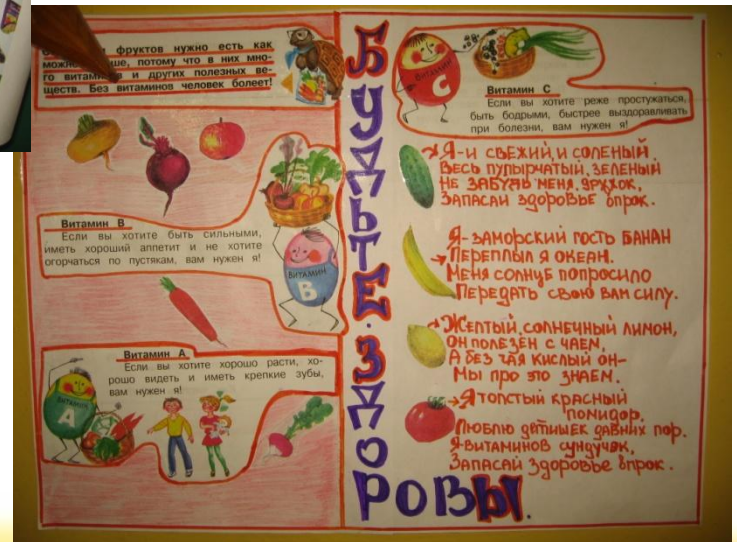 фруктов нужно есть как
потому что в них мно-
го витаминов и других полезных ве-
ществ. Без витаминов человек болеет!
Витамин В
Если вы хотите быть сильными,
иметь хороший аппетит и не хотите
огорчаться по пустякам, вам нужен я!
ВИТАМИН
В
Витамин А
Если вы хотите хорошо расти, хо-
рошо видеть и иметь крепкие зубы,
вам нужен я!
ВИТАМИН
А
БУДЬТЕ ЗДОРОВЫ.
ВИТАМИН
С
Витамин С
Если вы хотите реже простужаться,
быть бодрыми, быстрее выздоравливать
при болезни, вам нужен я!
Я-И СВЕЖИЙ, И СОЛЕНЫЙ,
ВЕСЬ ПУПЫРЧАТЫЙ, ЗЕЛЕНЫЙ
НЕ ЗАБУДЬ МЕНЯ, ДРУЖОК,
ЗАПАСАЙ ЗДОРОВЬЕ ВПРОК.
Я-ЗАМОРСКИЙ ГОСТЬ БАНАН
ПЕРЕПЛЫЛ Я ОКЕАН.
МЕНЯ СОЛНЦЕ ПОПРОСИЛО
ПЕРЕДАТЬ СВОЮ ВАМ СИЛУ.
ЖЕЛТЫЙ, СОЛНЕЧНЫЙ ЛИМОН,
ОН ПОЛЕЗЕН С ЧАЕМ,
А БЕЗ ЧАЯ КИСЛЫЙ ОН-
МЫ ПРО ЭТО ЗНАЕМ.
Я ТОЛСТЫЙ КРАСНЫЙ
ПОМИДОР,
ЛЮБЛЮ ДЕТИШЕК ДАВНИХ ПОР.
Я-ВИТАМИНОВ СУНДУЧОК,
ЗАПАСАЙ ЗДОРОВЬЕ ВПРОК.